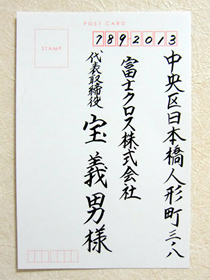 POST CARD
STAMP
7892013
中央区日本橋人形町三・八
富士クロス株式会社
代表取締役
宝義男様